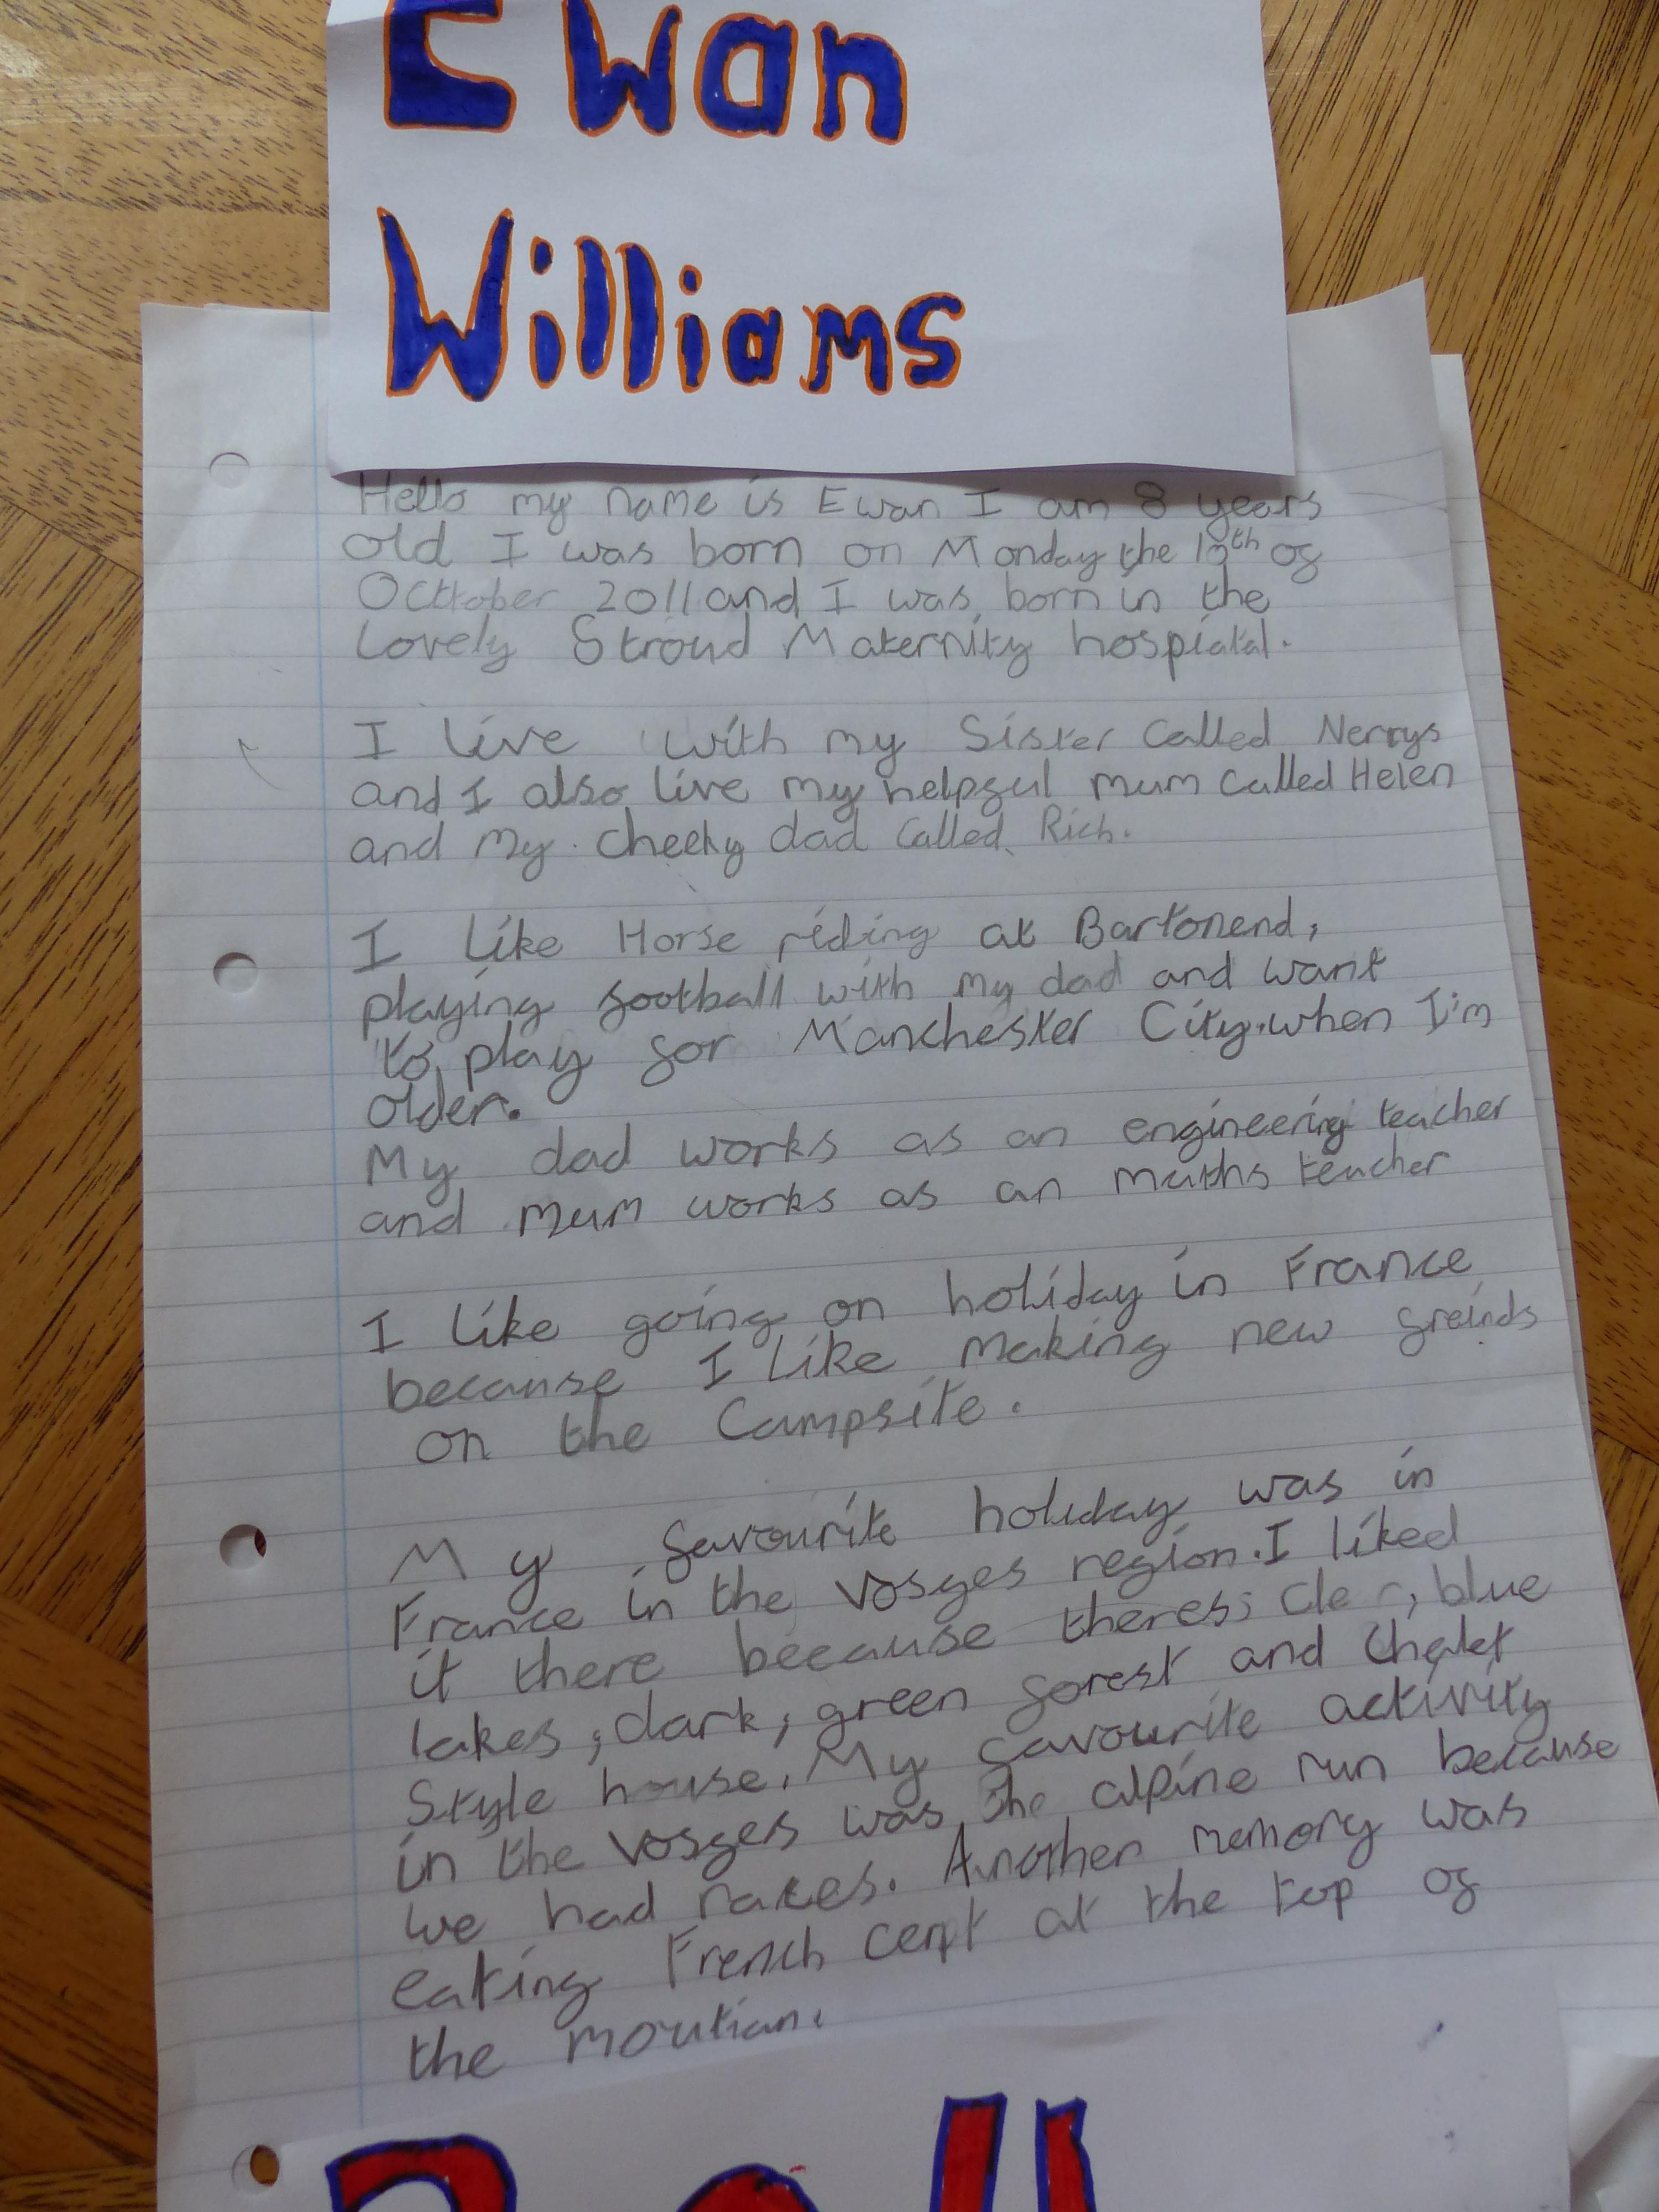 Ewan
Williams
Hello my name is Ewan I am 8 years
old I was born on Monday the of
Octtober 2011 and I was born in the
lovely Stroud Maternity hospiatal.
I live with my Sister called Nerrys
and I also live my helpful mum called Helen
and my cheeky dad called Rich.
I like Horse riding at Bartonend,
playing football with my dad and want
to play for Manchester City.when I'm
older.
My dad works as an engineering teacher
and mum works as an maths teacher
I like going on holiday in France
because I like making new freinds
on the Campsite.
My favourite holiday was in
France in the Vosges region.I liked
it there because theres; , blue
lakes ; dark, green forest and Chalet
Style house. My favourite activity
in the Vosges was the alpine run because
we had races. Another memory was
eating French at the top of
the moutian.